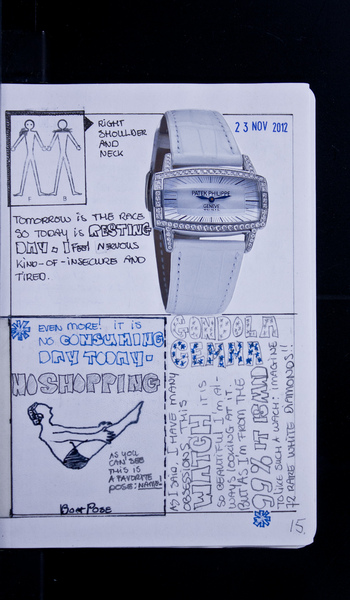 RIGHT
SHOULDER
AND
NECK
F B
23 NOV 2012
PATEK PHILIPPE
GENEVE
TOMORROW IS THE RACE
SO TODAY IS RESTING
DAY. I FEEL NERVOUS
KIND-OF-INSECURE AND
TIRED.
EVEN MORE! IT IS
NO CONSUMING
DAY TODAY-
NO SHOPPING
AS YOU
CAN SEE
THIS IS
A FAVORITE
POSE: NAME!
BOAT POSE
GONDOLO
GEMMA
AS I SAID, I HAVE MANY
OBSESSIONS. THIS
WATCH IT IS
SO BEAUTIFUL I'M AL-
WAYS LOOKING AT IT.
BUT AS I'M FROM THE
99% IT IS
TO USE SUCH A WATCH: IMAGINE
72 RARE WHITE DIAMONDS!!
15.